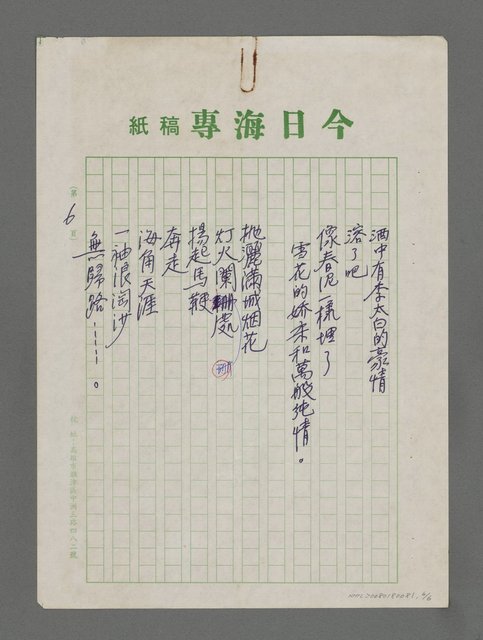 今日海專稿紙
酒中有李太白的豪情
溶了吧
像春泥一樣埋了
雪花的嬌柔和萬般純情。
拋灑滿城烟花
灯火闌珊處
揚起馬鞭
奔走
海角天涯
一袖浪淘沙
無歸路……。
(第6頁)
校址:高雄市旗津區中洲三路四八二號